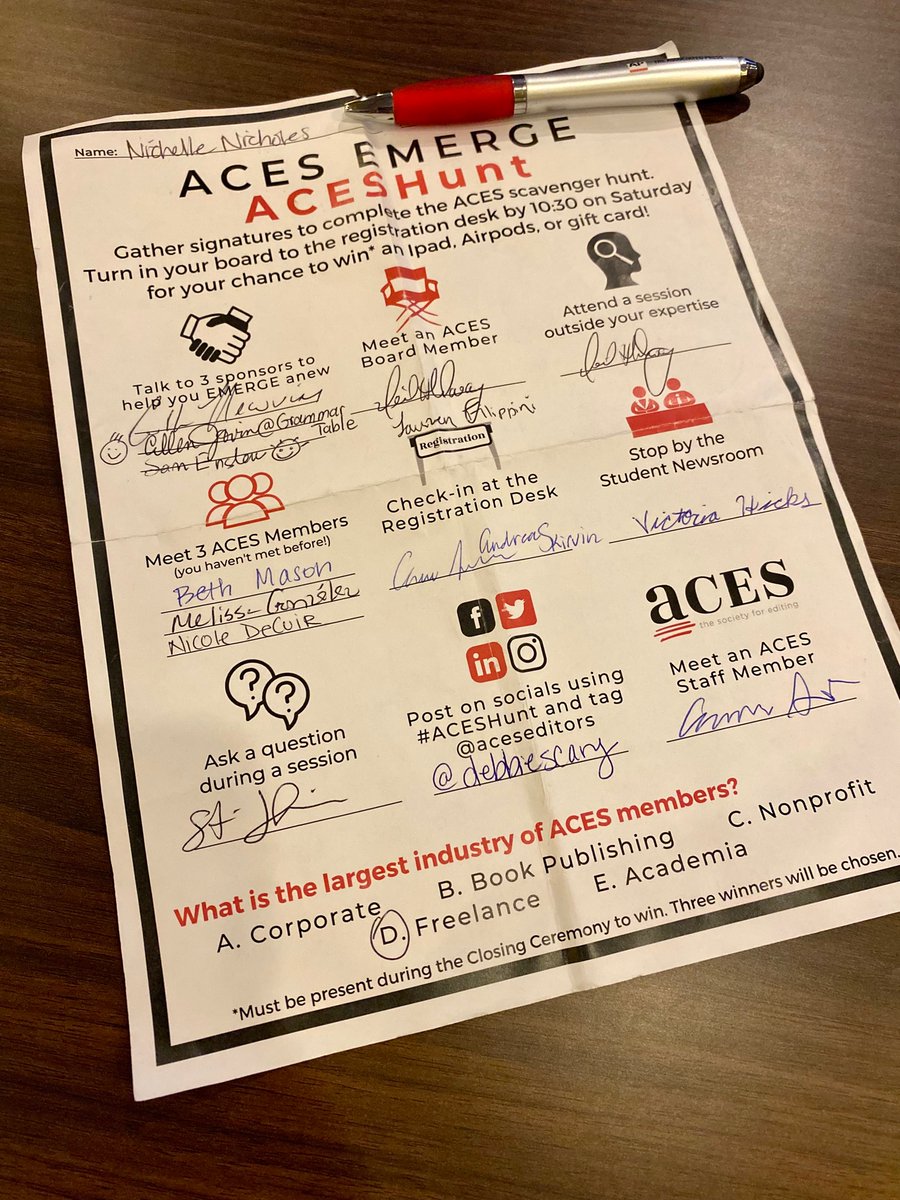 Name: Nichelle Nicholes
ACES EMERGE
ACESHunt
Gather signatures to complete the ACES scavenger hunt.
Turn in your board to the registration desk by 10:30 on Saturday
for your chance to win* an Ipad, Airpods, or gift card!
Talk to 3 sponsors to
help you EMERGE anew
@Grammar
Table
Sam Enslow
Meet an ACES
Board Member
Lauren Filippini
Attend a session
outside your expertise
Meet 3 ACES Members
(you haven't met before!)
Beth Mason
Melissa González
Nicole DeCuir
Registration
Check-in at the
Registration Desk
Andreas
Skirvin
Stop by the
Student Newsroom
Victoria Hicks
Ask a question
during a session
f
in
Post on socials using
#ACESHunt and tag
@aceseditors
@debbiescary
aCES
the society for editing
Meet an ACES
Staff Member
What is the largest industry of ACES members?
A. Corporate
B. Book Publishing
C. Nonprofit
D. Freelance
E. Academia
*Must be present during the Closing Ceremony to win. Three winners will be chosen.
AP